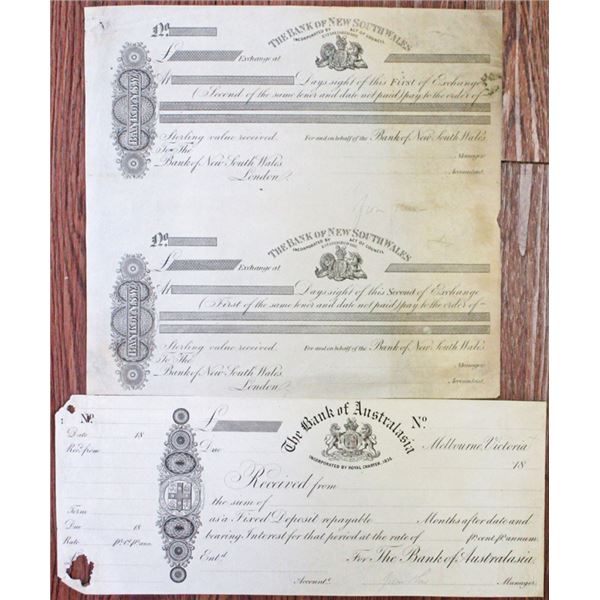 THE BANK OF NEW SOUTH WALES
No.
INCORPORATED BY ACT OF COUNCIL
£ Exchange at
At Days sight of this First of Exchange
(Second of the same tenor and date not paid) pay to the order of
BANK OF N.S.W.
Sterling value received. For and on behalf of the Bank of New South Wales.
To The
Bank of New South Wales Manager
London. Accountant.
THE BANK OF NEW SOUTH WALES
No.
INCORPORATED BY ACT OF COUNCIL
£ Exchange at
At Days sight of this Second of Exchange
(First of the same tenor and date not paid) pay to the order of
BANK OF N.S.W.
Sterling value received. For and on behalf of the Bank of New South Wales.
To The
Bank of New South Wales Manager
London. Accountant.
No.
Date 18
Recd. from
Term
Due 18
Rate pr. Ct. pr. ann.
£
The Bank of Australasia No.
Due
INCORPORATED BY ROYAL CHARTER, 1835.
Melbourne, Victoria
18
Received from
the sum of
as a Fixed Deposit repayable Months after date and
bearing Interest for that period at the rate of pr cent pr annum.
Entd. For The Bank of Australasia.
Accountt. Manager.